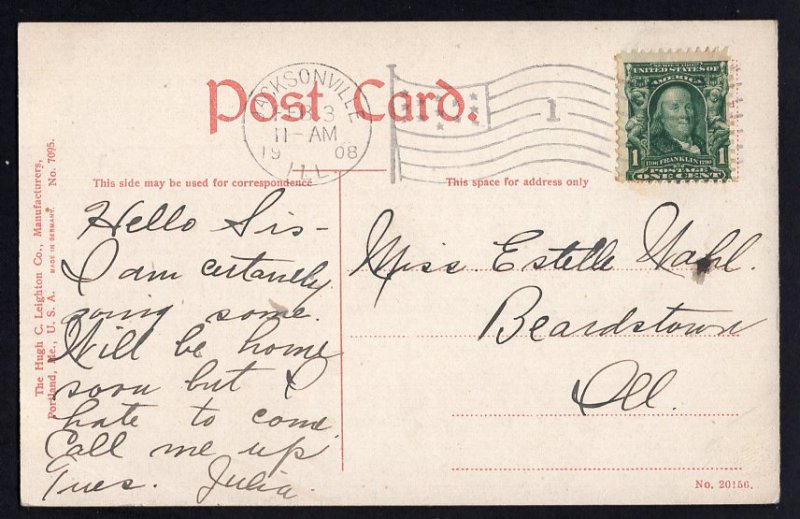 Post Card.
JACKSONVILLE
FEB 3
11-AM
19 08
ILL.
1
SERIES 1902
UNITED STATES OF
AMERICA
1 1
1706 FRANKLIN 1790
POSTAGE
ONE CENT
This side may be used for correspondence
This space for address only
The Hugh C. Leighton Co., Manufacturers,
Portland, Me., U. S. A.
MADE IN GERMANY.
No. 7095.
Hello Sis-
I am certanely
going some.
Will be home
soon but I
hate to come.
Call me up
Tues. Julia.
Miss Estelle Wahl.
Beardstown
Ill.
No. 20156.